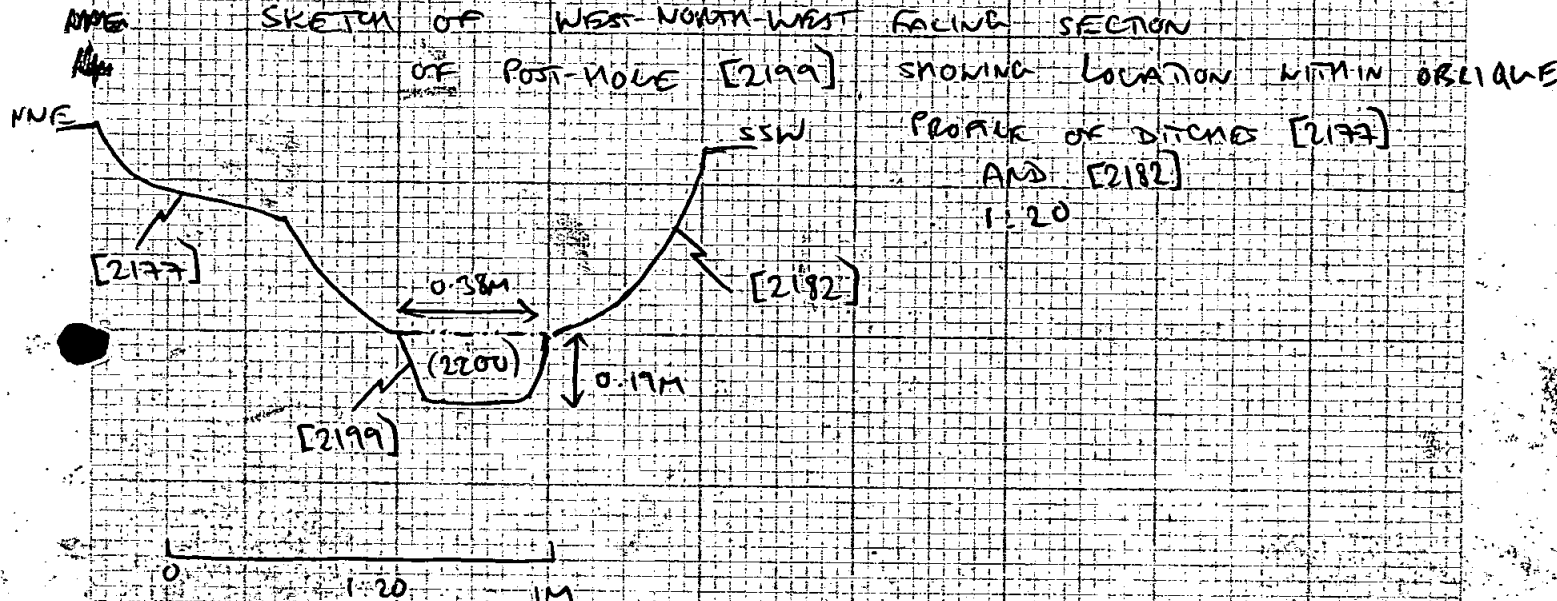 SKETCH OF WEST-NORTH-WEST FACING SECTION
OF POST-HOLE [2199] SHOWING LOCATION WITHIN OBLIQUE
PROFILE OF DITCHES [2177]
AND [2182]
1:20
NNE
SSW
[2177]
0.38M
[2182]
(2200)
0.19M
[2199]
0 1:20 1M